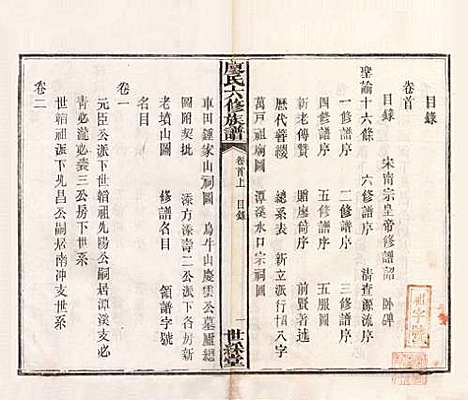 目錄
卷首
目錄 宋南宗皇帝修譜詔 臥碑
聖諭十六條 六修譜序 清查源流序
一修譜序 二修譜序 三修譜序
四修譜序 五修譜序
新老傳贊 贈廖倚序 五服圖
歷代簪纓 總系表 新立派行惜八字
萬戸祖廟圖 潭溪水口宗祠圖
廖氏六修族譜
卷首上 目錄
一
世綵堂
車田鍾家山祠圖 烏牛山慶雲公墓廬總
圖附契批 添方添壽二公派下各房新
老墳山圖 修譜名目 領譜字號
名目
卷一
元臣公派下世韜祖先陽公嗣居潭溪支必
青必瀧必袠三公房下世系
世韜祖派下先昌公嗣居南冲支世系
卷二
祖字號